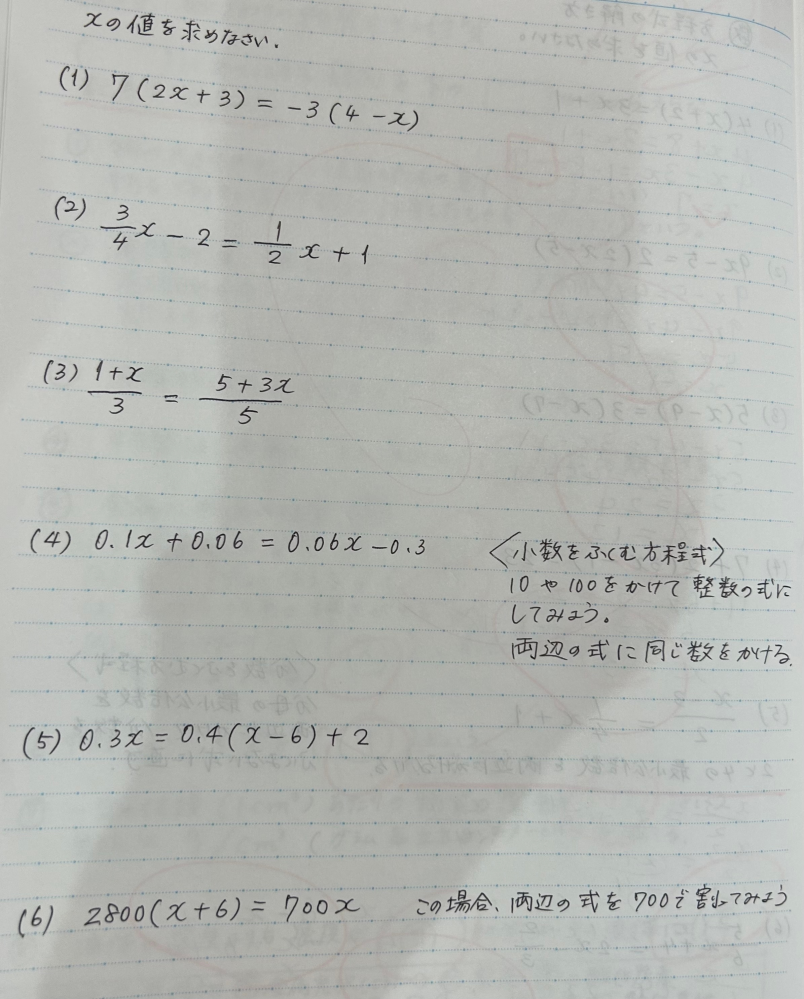 xの値を求めなさい.
(1) 7(2x+3) = -3(4-x)
(2) 3/4 x - 2 = 1/2 x + 1
(3) (1+x)/3 = (5+3x)/5
(4) 0.1x + 0.06 = 0.06x - 0.3
〈小数をふくむ方程式〉
10や100をかけて整数の式に
してみよう。
両辺の式に同じ数をかける.
(5) 0.3x = 0.4(x-6)+2
(6) 2800(x+6) = 700x
この場合、両辺の式を700で割ってみよう